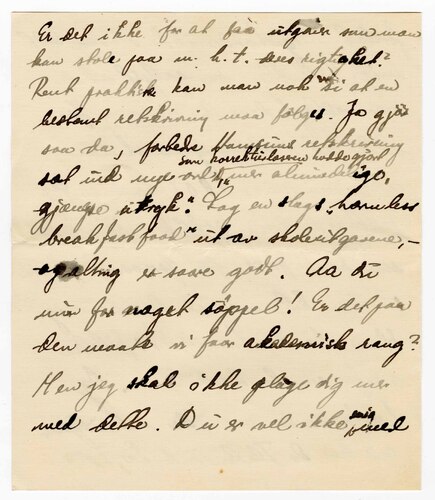 Er det ikke for at faa utgaver som man
kan stole paa m. h. t. deres rigtighet?
Rent praktisk kan man nok si at en
bestemt retskrivning maa følges. Ja gjør
saa da, forbedre Hamsuns retskrivning
som korrekturlæseren hadde gjort
sæt ind nye ord, mer almindelige,
gjængse uttryk". Lag en slags "harmless
breakfast food" ut av skoleutgavene, –
og alting er saare godt. Aa du
min for noget søppel! Er det paa
den maate vi faar akademisk rang?
Men jeg skal ikke plage dig mer
med dette. Du er vel ikke enig
med